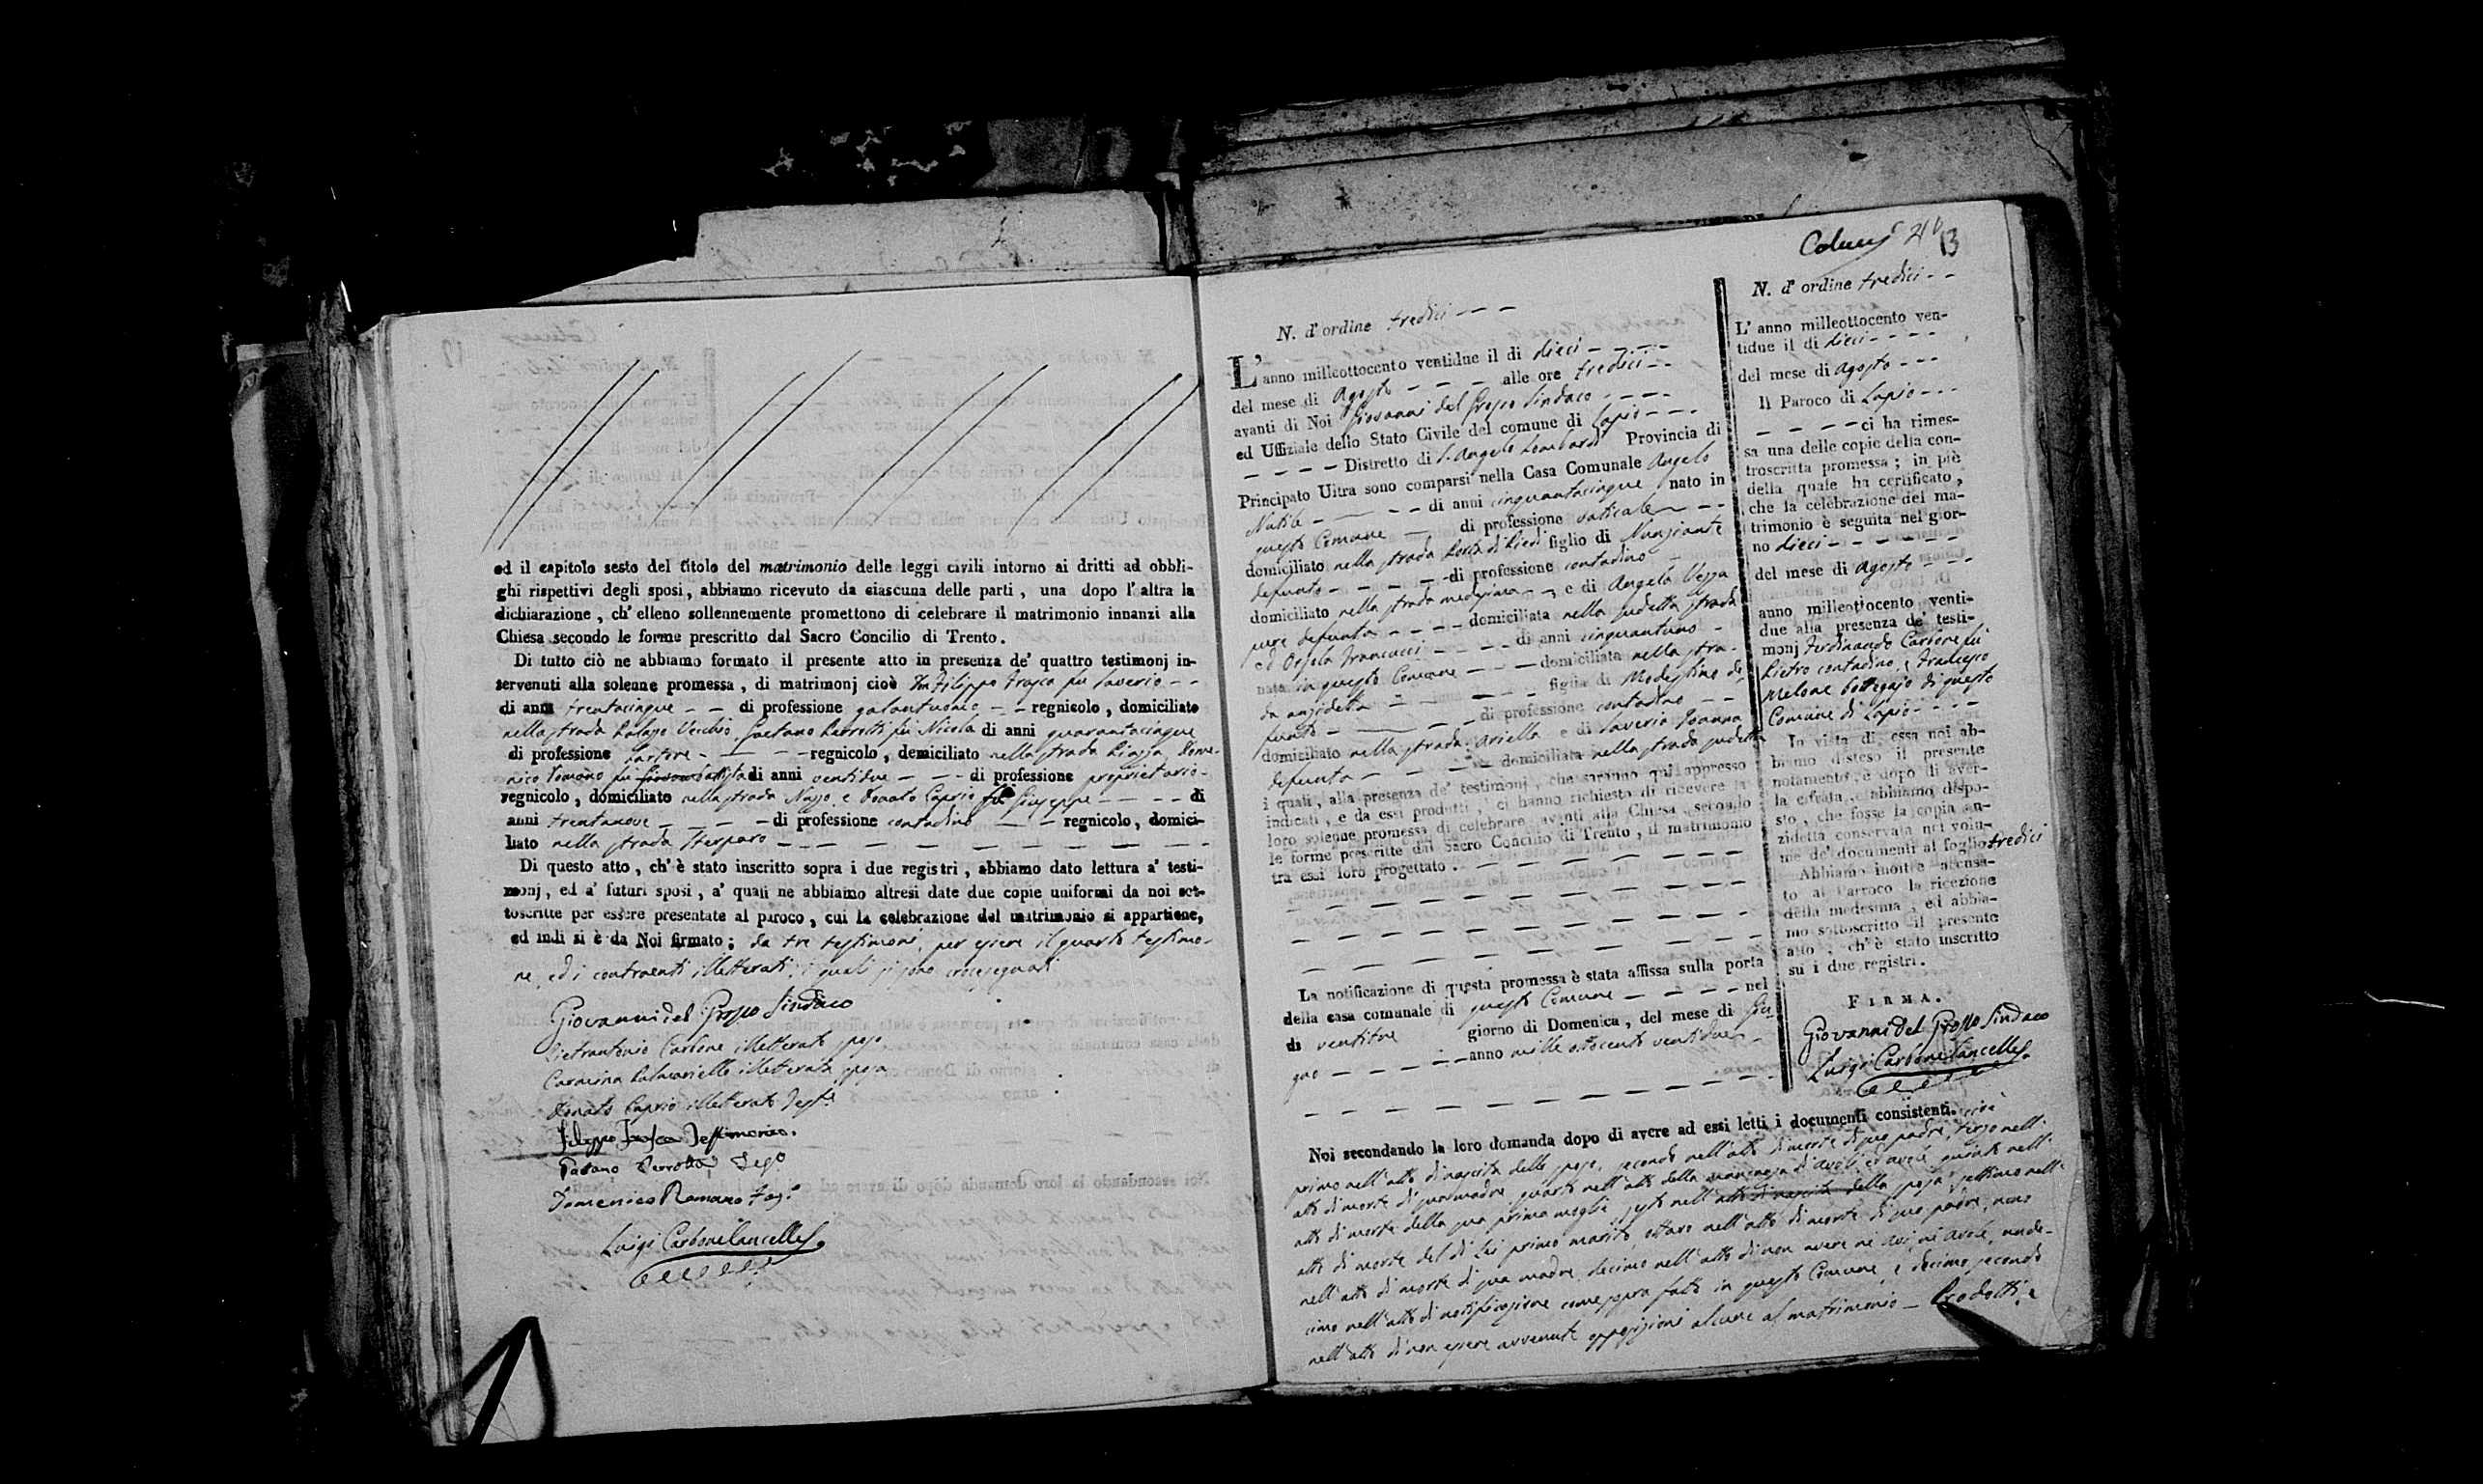 ed il capitolo sesto del titolo del matrimonio delle leggi civili intorno ai dritti ad obbli-
ghi rispettivi degli sposi, abbiamo ricevuto da ciascuna delle parti, una dopo l'altra la
dichiarazione, ch'elleno sollennemente promettono di celebrare il matrimonio innanzi alla
Chiesa secondo le forme prescritto dal Sacro Concilio di Trento.
Di tutto ciò ne abbiamo formato il presente atto in presenza de' quattro testimonj in-
tervenuti alla solenne promessa, di matrimonj cioè Filippo Frasca fu Saverio - -
di anni trentacinque - - di professione galantuomo - - regnicolo, domiciliato
nella strada Palazzo Vecchio, Gaetano Perrotti fu Nicola di anni quarantacinque
di professione sartore - - - regnicolo, domiciliato nella strada Piazza, Dome-
nico Romano fu di anni ventidue - - - di professione proprietario -
regnicolo, domiciliato nella strada e Donato Caprio fu Giuseppe - - - di
anni trentanove - - - - di professione contadino - - regnicolo, domici-
liato nella strada - - - - - - - - -
Di questo atto, ch'è stato inscritto sopra i due registri, abbiamo dato lettura a' testi-
monj, ed a' futuri sposi, a' quali ne abbiamo altresi date due copie uniformi da noi sot-
toscritte per essere presentate al paroco, cui la celebrazione del matrimonio si appartiene,
ed indi si è da Noi firmato; da tre testimoni, per essere il quarto testimo-
ne, ed i contraenti illetterati, i quali si sono crocesegnati
Giovanni del Grosso Sindaco
Pietrantonio Carbone illetterato sposo
Carmina illetterata sposa
Donato Caprio illetterato Test.e
Filippo Frasca Testimonio.
Gaetano Perrotti Teso
Domenico Romano Tes.o
Luigi Carbone Cancelle.
13
N. d'ordine tredici - - -
L'anno milleottocento ventidue il di dieci - - - -
del mese di Agosto - - - alle ore tredici - -
avanti di Noi Giovanni del Grosso Sindaco - - - -
ed Uffiziale dello Stato Civile del comune di Lapio - - -
- - - - Distretto di S. Angelo Lombardi Provincia di
Principato Ultra sono comparsi nella Casa Comunale Angelo
- - - - di anni cinquantacinque nato in
questo Comune - di professione vaticale - -
domiciliato nella strada figlio di Nunziante
defunto - - - - di professione contadino -
domiciliato nella strada medesima - - e di Angela
pure defunta - - - - domiciliata nella sudetta strada
ed Orsola - - - - di anni cinquantuno -
nata in questo Comune - - - domiciliata nella stra-
da anzidetta - - - - figlia di Modestino de-
funto - - - - di professione contadino - -
domiciliato nella strada Ariella e di Saveria
defunta - - - - domiciliata nella strada sudetta
i quali, alla presenza de' testimonj, che saranno qui appresso
indicati, e da essi prodotti, ci hanno richiesto di ricevere la
loro solenne promessa di celebrare avanti alla Chiesa secondo
le forme prescritte dal Sacro Concilio di Trento, il matrimonio
tra essi loro progettato. - - - - - - -
La notificazione di questa promessa è stata affissa sulla porta
della casa comunale di questo Comune - - - - nel
di ventitre giorno di Domenica, del mese di Giu-
gno - - - - - anno mille ottocento ventidue -
N. d'ordine tredici - -
L'anno milleottocento ven-
tidue il di dieci - - - -
del mese di Agosto - - -
Il Paroco di Lapio - - -
- - - - ci ha rimes-
sa una delle copie della con-
troscritta promessa; in piè
della quale ha certificato,
che la celebrazione del ma-
trimonio è seguita nel gior-
no dieci - - - - - -
del mese di Agosto - - -
anno milleottocento venti-
due alla presenza de' testi-
monj Ferdinando Carbone fu
Pietro contadino, e Francesco
Melone bottegajo di questo
Comune di Lapio - - - -
In vista di essa noi ab-
biamo disteso il presente
notamento, e dopo di aver-
la cifrata, abbiamo dispo-
sto, che fosse la copia an-
zidetta conservata nel volu-
me de' documenti al foglio tredici
Abbiamo inoltre accusa-
to al Parroco la ricezione
della medesima, ed abbia-
mo sottoscritto il presente
atto, ch'è stato inscritto
su i due registri.
FIRMA.
Giovanni del Grosso Sindaco
Luigi Carbone Cancelle.
Noi secondando la loro domanda dopo di avere ad essi letti i documenti consistenti. cioè
primo nell'atto di nascita dello sposo, secondo nell'atto di morte di suo padre, terzo nell'
atto di morte di sua madre, quarto nell'atto della mancanza di avoli ed avole quinto nell'
atto di morte della sua prima moglie, sesto nell'atto di nascita della sposa, settimo nell'
atto di morte del di lei primo marito, ottavo nell'atto di morte di suo padre, nono
nell'atto di morte di sua madre, decimo nell'atto di non avere ne avi, ne avole, unde-
cimo nell'atto di notificazione come sopra fatto in questo Comune, e decimo secondo
nell'atto di non essere avvenute opposizioni alcune al matrimonio - Prodotti, e